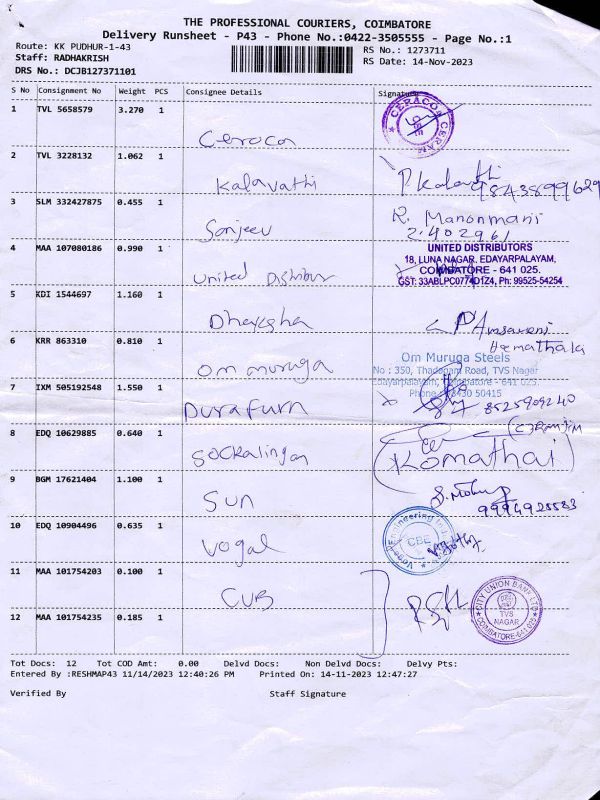 THE PROFESSIONAL COURIERS, COIMBATORE
Delivery Runsheet - P43 - Phone No.:0422-3505555 - Page No.:1
Route: KK PUDHUR-1-43
RS No.: 1273711
Staff: RADHAKRISH
RS Date: 14-Nov-2023
DRS No.: DCJB127371101
S No Consignment No Weight PCS Consignee Details Signature
1 TVL 5658579 3.270 1 Ceroca
CERACO CERAM
2 TVL 3228132 1.062 1 Kalavathi
P. Kalavathi
9843899629
3 SLM 332427875 0.455 1 Sanjeev
R. Manonmani
2.402961
4 MAA 107080186 0.990 1 United Distibur
UNITED DISTRIBUTORS
18, LUNA NAGAR, EDAYARPALAYAM,
COIMBATORE - 641 025.
GST: 33ABLPC0774D1Z4, Ph: 99525-54254
5 KDI 1544697 1.160 1
Amsaveni
Hemathala
6 KRR 863310 0.810 1 Om muruga
Om Muruga Steels
No : 350, Thadagam Road, TVS Nagar
Edayarpalayam, Coimbatore - 641 025.
Phone : 98430 50415
7 IXM 505192548 1.550 1 Durafurn
8525909240
8 EDQ 10629885 0.640 1 Sockalingan
Komathai
9 BGM 17621404 1.100 1 Sun
9994928583
10 EDQ 10904496 0.635 1 Vogal
CBE
11 MAA 101754203 0.100 1 CUB
CITY UNION BANK LTD
TVS
NAGAR
COIMBATORE-641 025
12 MAA 101754235 0.185 1
Tot Docs: 12 Tot COD Amt: 0.00 Delvd Docs: Non Delvd Docs: Delvy Pts:
Entered By :RESHMAP43 11/14/2023 12:40:26 PM Printed On: 14-11-2023 12:47:27
Verified By Staff Signature